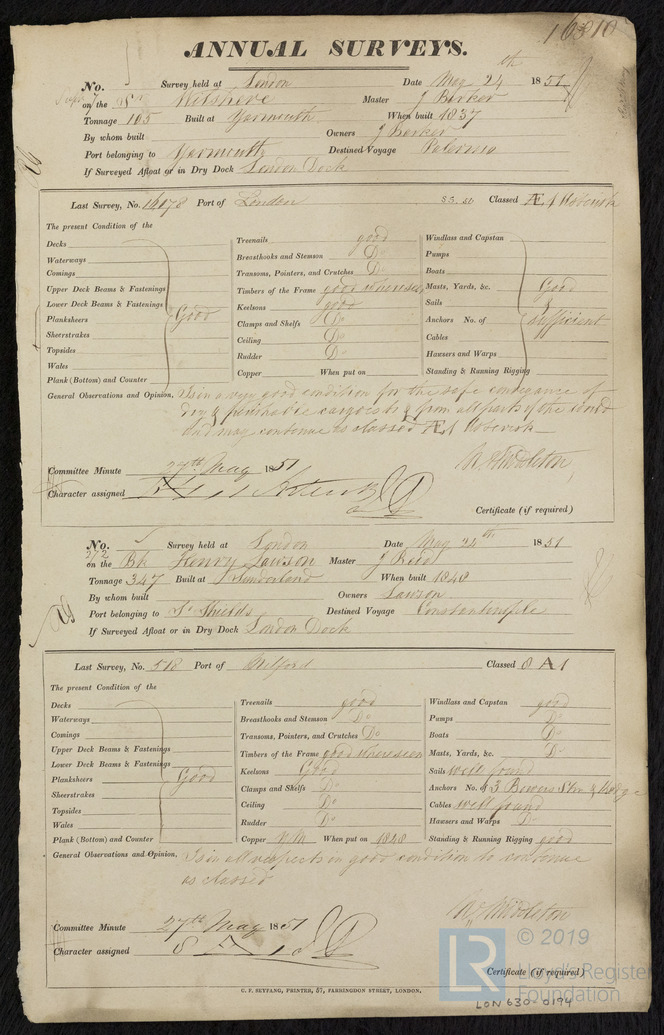 16310
ANNUAL SURVEYS.
No. Survey held at London Date May 24th 1851
on the Wilshere Master J Barker
Tonnage 105 Built at Yarmouth When built 1837
By whom built Owners J Barker
Port belonging to Yarmouth Destined Voyage Palermo
If Surveyed Afloat or in Dry Dock London Dock
Last Survey, No. 14078 Port of London 53. 50 Classed Æ 1
The present Condition of the
Decks
Waterways
Comings
Upper Deck Beams & Fastenings
Lower Deck Beams & Fastenings
Planksheers Good
Sheerstrakes
Topsides
Wales
Plank (Bottom) and Counter
Treenails good
Breasthooks and Stemson Do
Transoms, Pointers, and Crutches Do
Timbers of the Frame good where seen
Keelsons good
Clamps and Shelfs Do
Ceiling Do
Rudder Do
Copper When put on
Windlass and Capstan
Pumps
Boats
Masts, Yards, &c. Good
Sails &
Anchors No. of Sufficient
Cables
Hawsers and Warps
Standing & Running Rigging
General Observations and Opinion, Is in a very good condition for the safe conveyance of
dry & perishable cargoes to & from all parts of the world
and may continue as classed Æ 1
Committee Minute 27th May 1851
Character assigned
Middleton
Certificate (if required)
No. 272 Survey held at London Date May 24th 1851
on the Bk Henry Lawson Master J Reid
Tonnage 347 Built at Sunderland When built 1840
By whom built Owners Lawson
Port belonging to So Shields Destined Voyage Constantinople
If Surveyed Afloat or in Dry Dock London Dock
Last Survey, No. 518 Port of Milford Classed 8 A 1
The present Condition of the
Decks
Waterways
Comings
Upper Deck Beams & Fastenings
Lower Deck Beams & Fastenings
Planksheers Good
Sheerstrakes
Topsides
Wales
Plank (Bottom) and Counter
Treenails good
Breasthooks and Stemson Do
Transoms, Pointers, and Crutches Do
Timbers of the Frame good where seen
Keelsons Good
Clamps and Shelfs Do
Ceiling Do
Rudder Do
Copper YM When put on 1848
Windlass and Capstan good
Pumps Do
Boats Do
Masts, Yards, &c. Do
Sails well found
Anchors No. of 3 Bowers Strm & Kedge
Cables well found
Hawsers and Warps Do
Standing & Running Rigging good
General Observations and Opinion, Is in all respects in good condition to continue
as classed
Middleton
Committee Minute 27th May 1851
Character assigned 8 A 1
Certificate (if required)
C. F. SEYFANG, PRINTER, 57, FARRINGDON STREET, LONDON.
LR © 2019
Lloyd's Register
Foundation
LON 630-0194